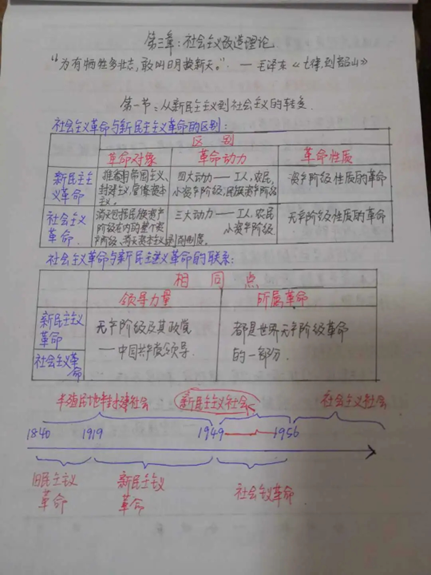 第三章：社会主义改造理论
“为有牺牲多壮志，敢叫日月换新天。” — 毛泽东《七律·到韶山》
第一节：从新民主主义到社会主义的转变
社会主义革命与新民主主义革命的区别：
区别
革命对象 革命动力 革命性质
新民主主义革命
推翻帝国主义、封建主义、官僚资本主义
四大动力——工人，农民，小资产阶级，民族资产阶级
资产阶级性质的革命
社会主义革命
消灭包括民族资产阶级在内的整个资产阶级，消灭资本主义制度。
三大动力——工人，农民，小资产阶级
无产阶级性质的革命
社会主义革命与新民主主义革命的联系：
相同点
领导力量 所属革命
新民主主义革命
社会主义革命
无产阶级及其政党——中国共产党领导
都是世界无产阶级革命的一部分
半殖民地半封建社会 新民主主义社会 社会主义社会
1840 1919 1949 1956
旧民主主义革命 新民主主义革命 社会主义革命